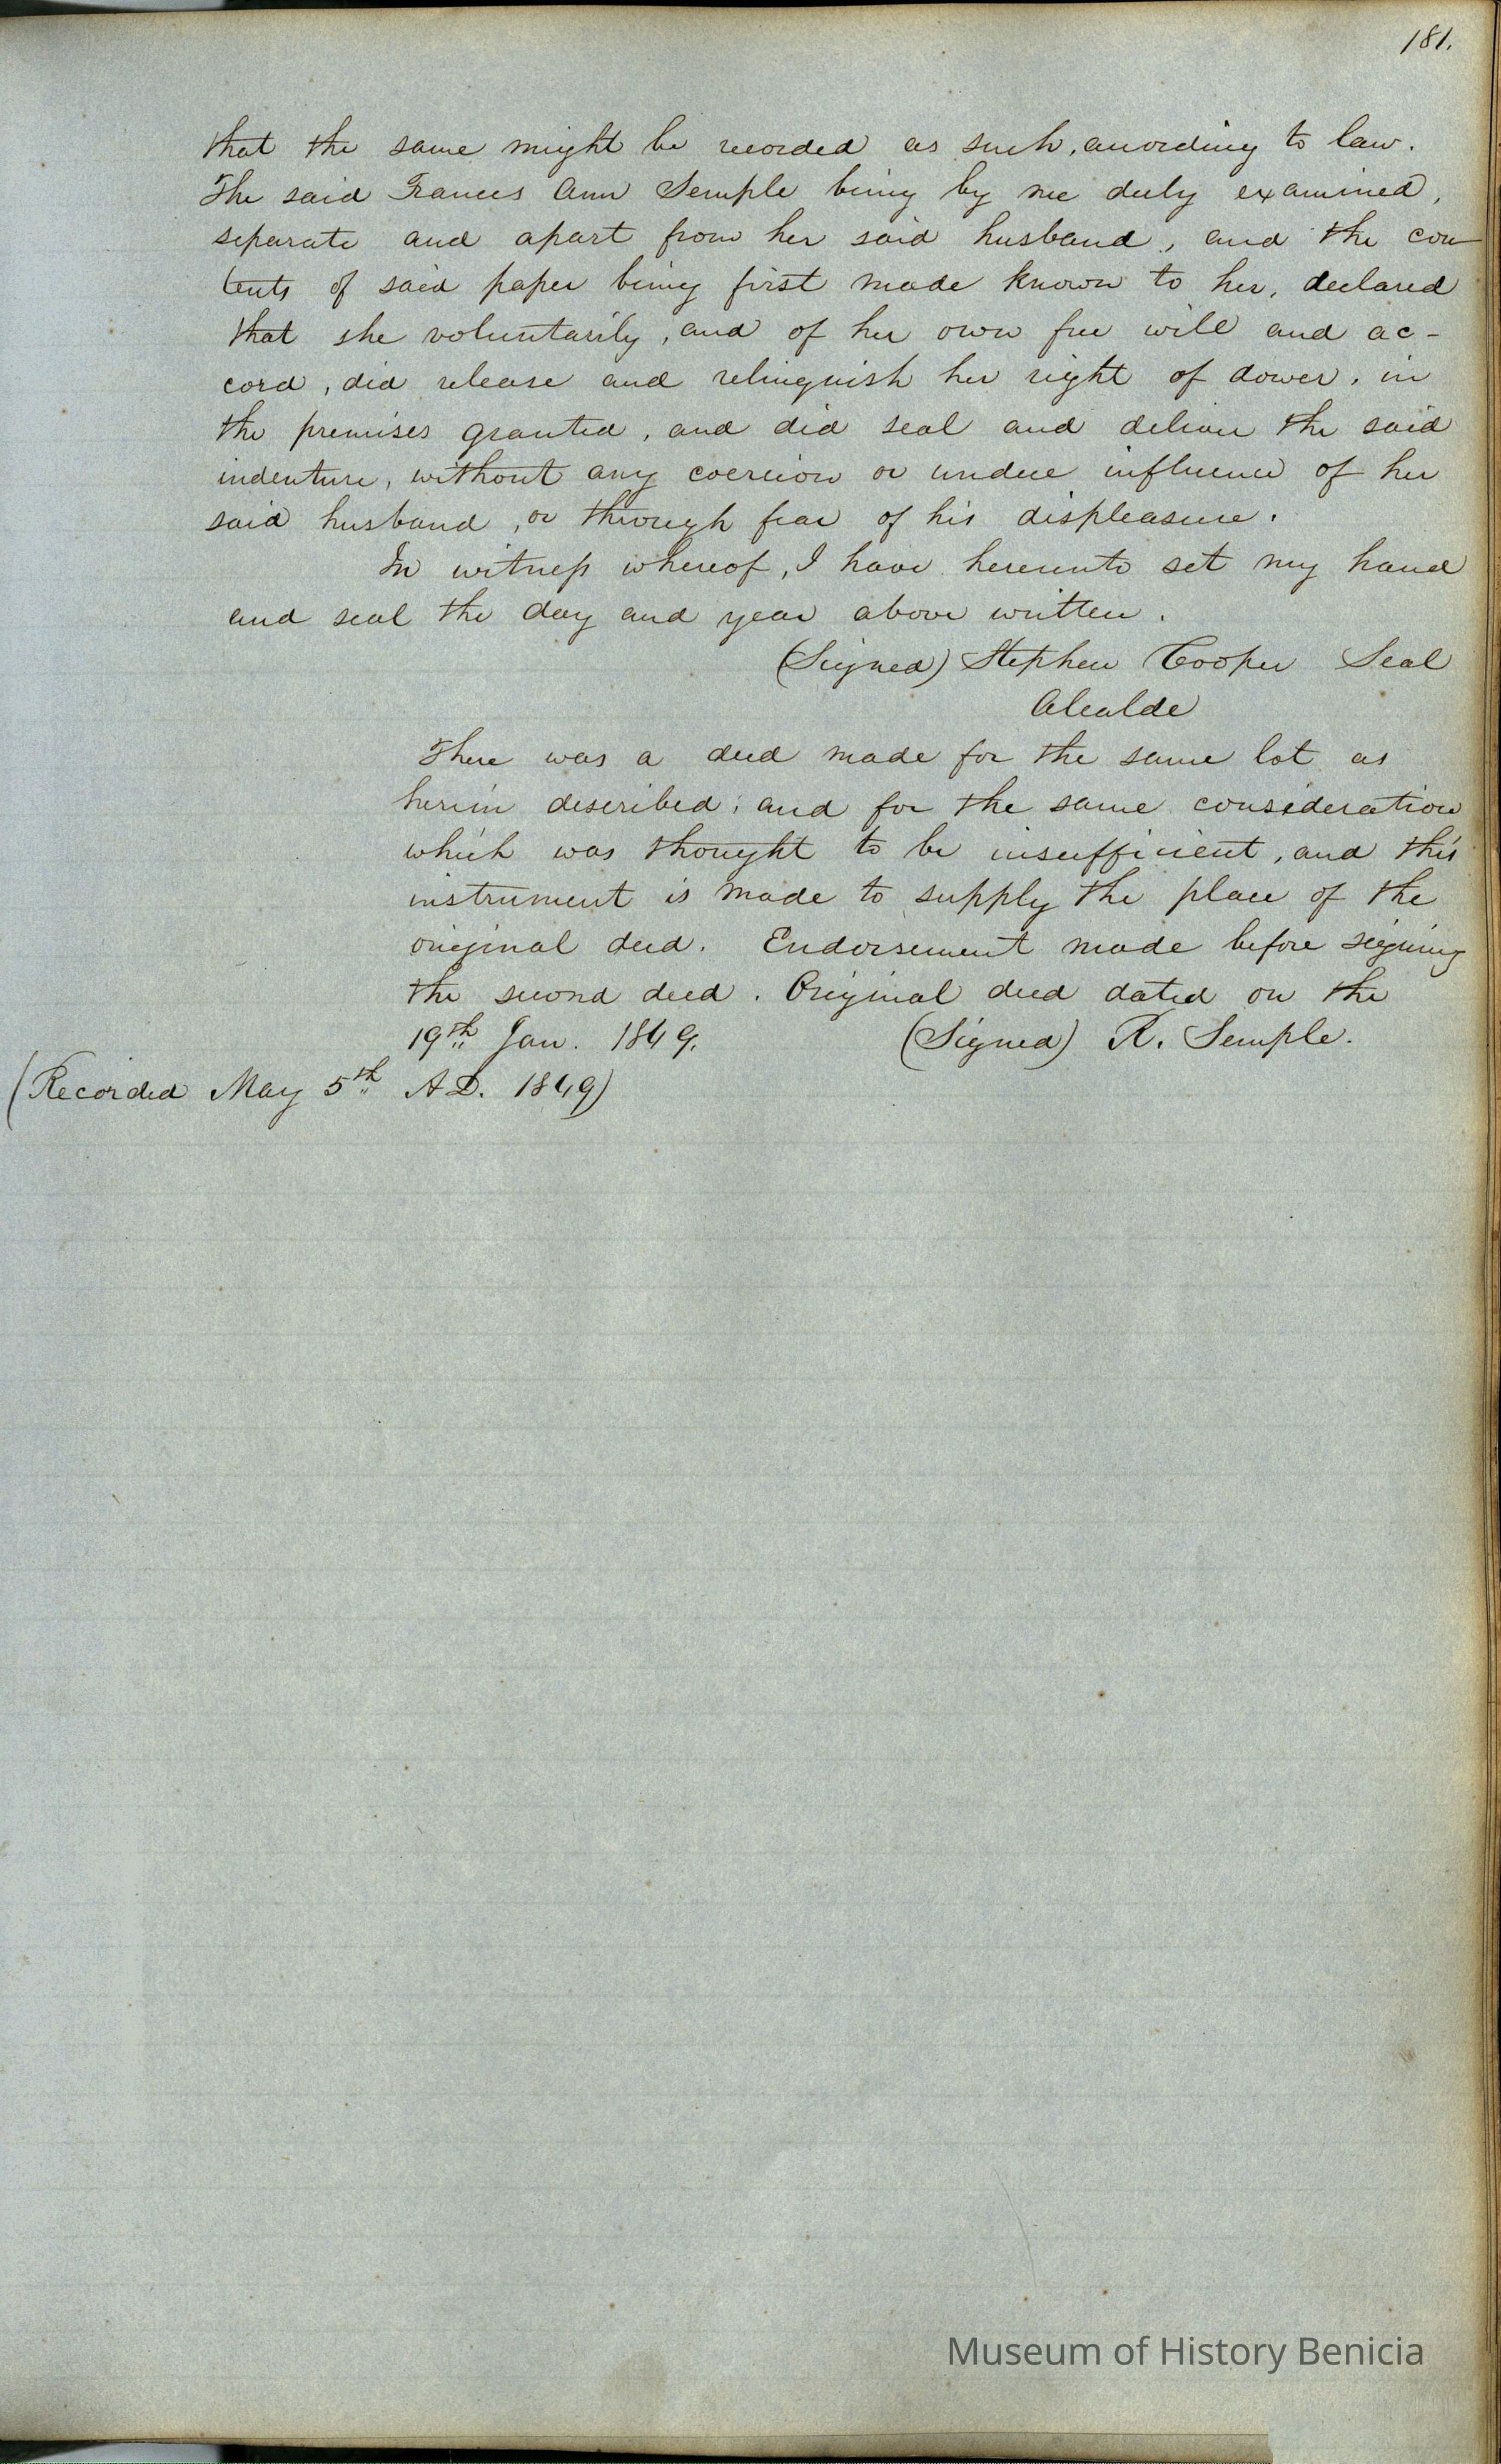 181.
that the same might be recorded as such, according to law.
The said Frances Ann Semple being by me duly examined,
separate and apart from her said husband, and the con-
tents of said paper being first made known to her, declared
that she voluntarily, and of her own free will and ac-
cord, did release and relinquish her right of dower, in
the premises granted, and did seal and deliver the said
indenture, without any coercion or undue influence of her
said husband, or through fear of his displeasure.
In witness whereof, I have hereunto set my hand
and seal the day and year above written.
(Signed) Stephen Cooper Seal
Alcalde
There was a deed made for the same lot as
herein described, and for the same consideration
which was thought to be insufficient, and this
instrument is made to supply the place of the
original deed. Endorsement made before signing
the second deed. Original deed dated on the
19th Jan. 1849. (Signed) R. Semple.
(Recorded May 5th A.D. 1849)
Museum of History Benicia